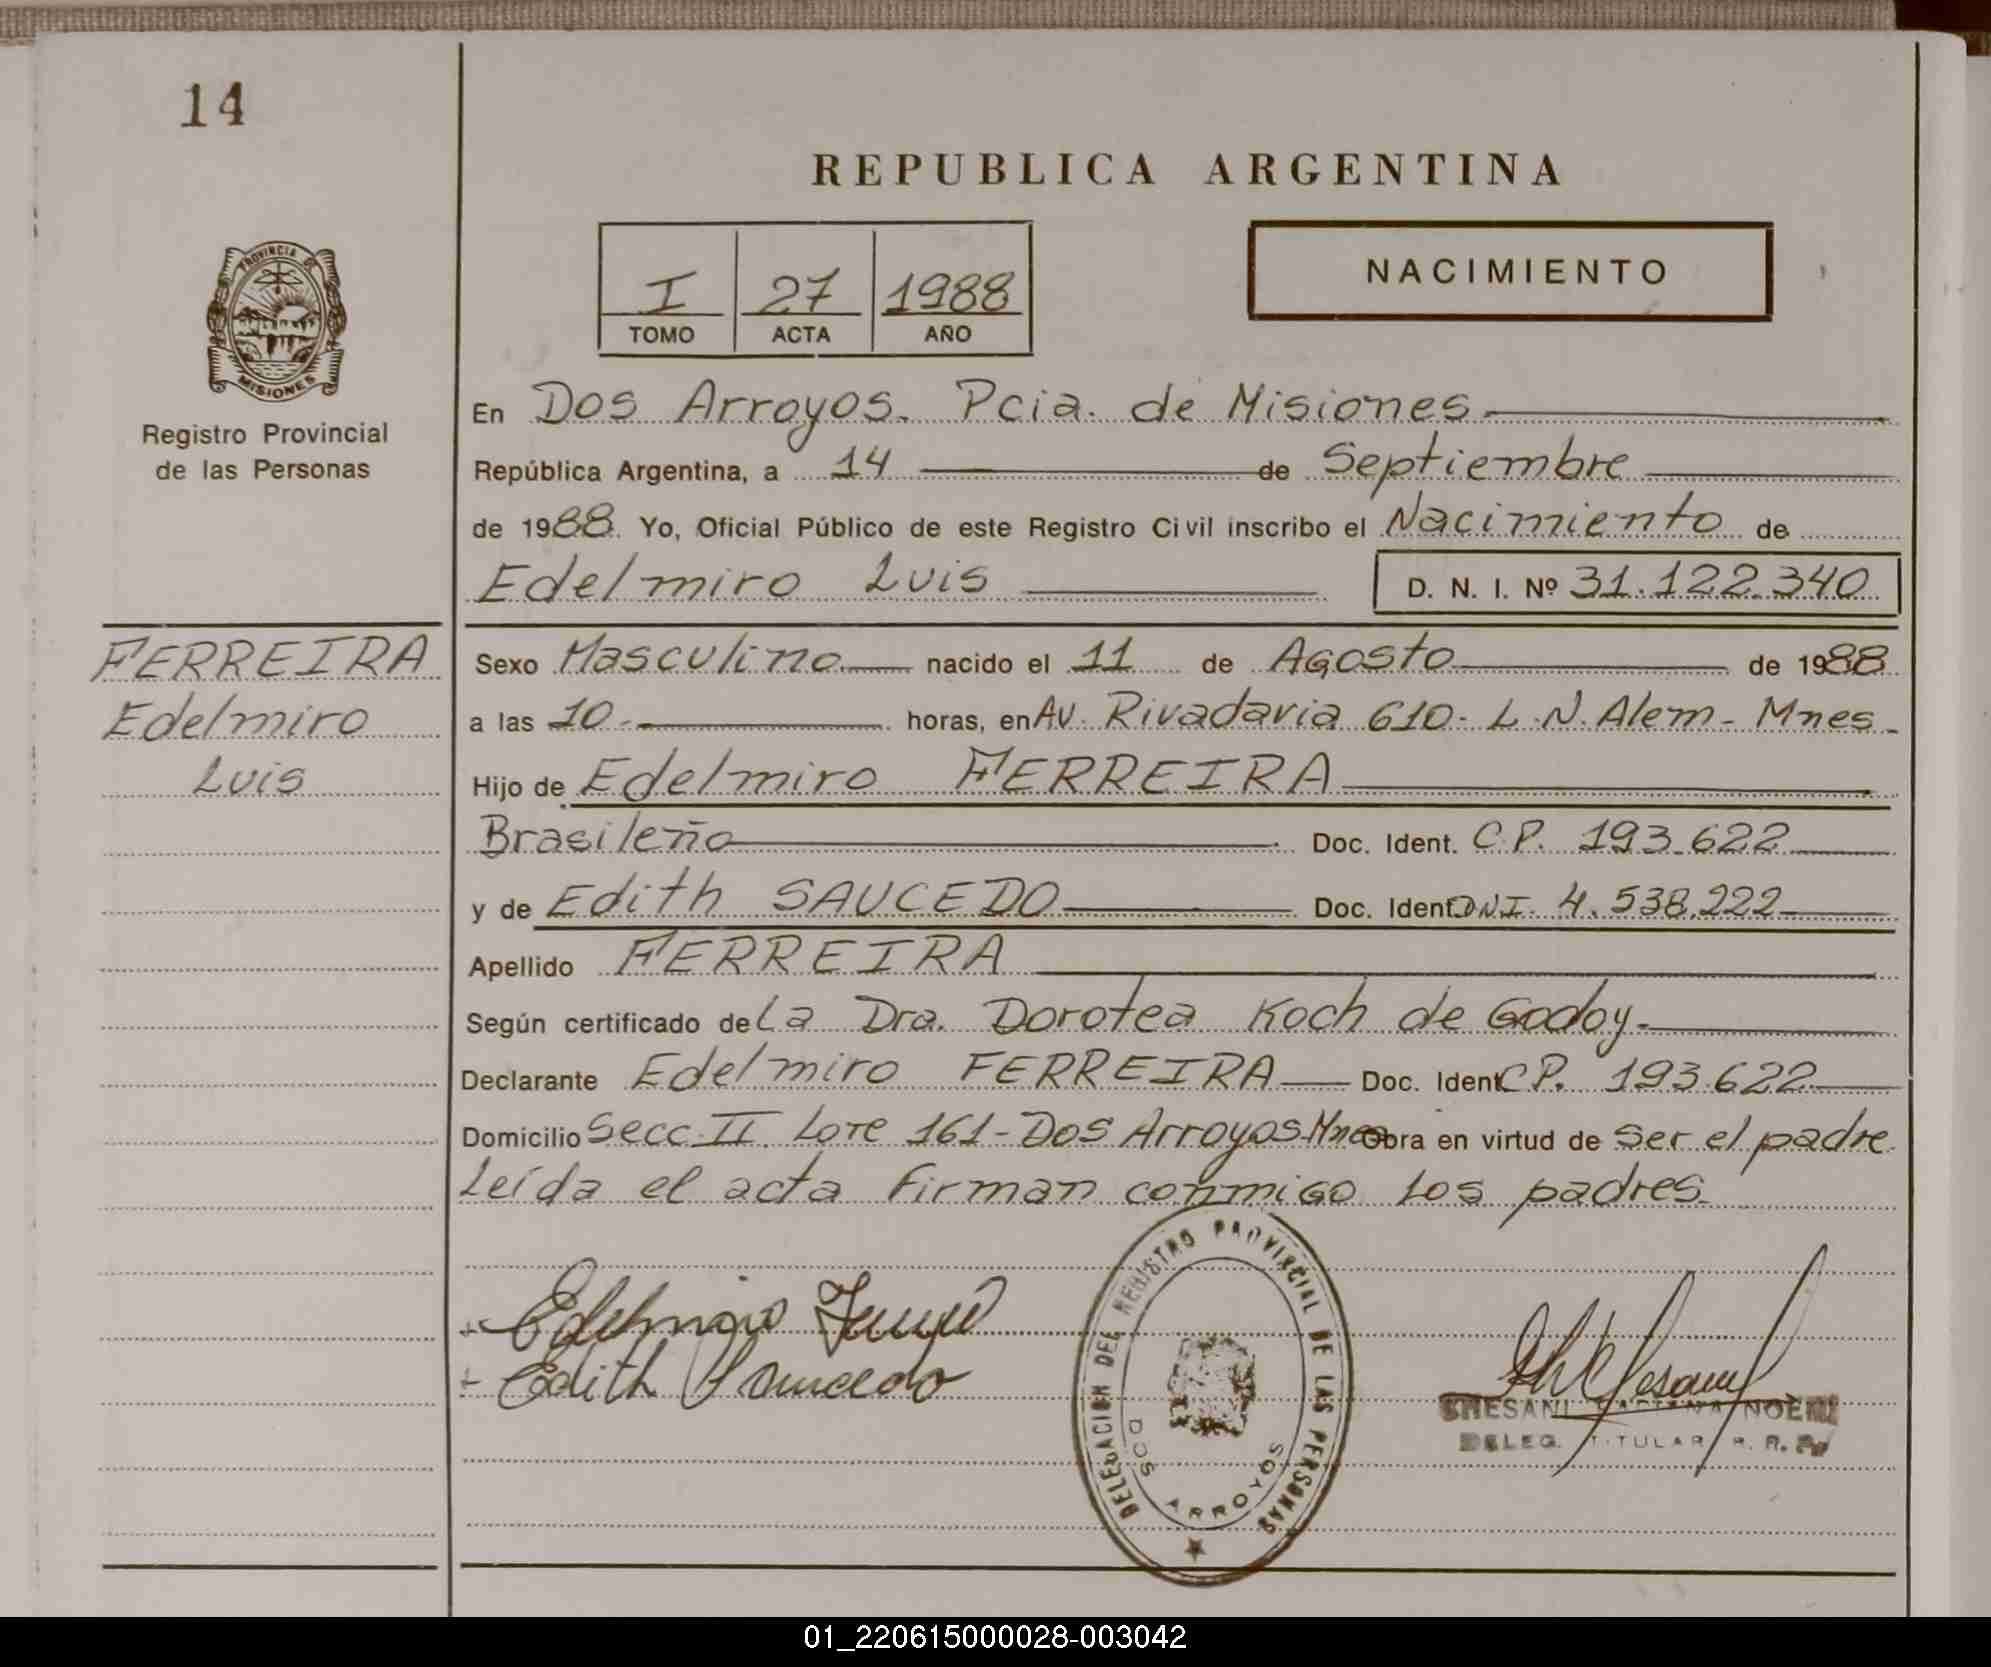 14
REPUBLICA ARGENTINA
PROVINCIA DE
MISIONES
Registro Provincial
de las Personas
I 27 1988
TOMO ACTA AÑO
NACIMIENTO
En Dos Arroyos. Pcia. de Misiones
República Argentina, a 14 de Septiembre
de 1988. Yo, Oficial Público de este Registro Civil inscribo el Nacimiento de
Edelmiro Luis D. N. I. Nº 31.122.340
FERREIRA
Edelmiro
Luis
Sexo Masculino nacido el 11 de Agosto de 1988
a las 10 horas, en Av. Rivadavia 610- L.N. Alem- Mnes-
Hijo de Edelmiro FERREIRA
Brasileño Doc. Ident. C.P. 193.622
y de Edith SAUCEDO Doc. Ident DNI. 4.538.222
Apellido FERREIRA
Según certificado de La Dra. Dorotea Koch de Godoy-
Declarante Edelmiro FERREIRA Doc. Ident CP. 193.622
Domicilio Secc. II Lote 161- Dos Arroyos-Mnes Obra en virtud de ser el padre
Leída el acta firman conmigo los padres
Edelmiro
Edith Saucedo
DELEGACION DEL REGISTRO PROVINCIAL DE LAS PERSONAS
DOS ARROYOS
NOEMI
DELEG. TITULAR R. R. P.
01_220615000028-003042